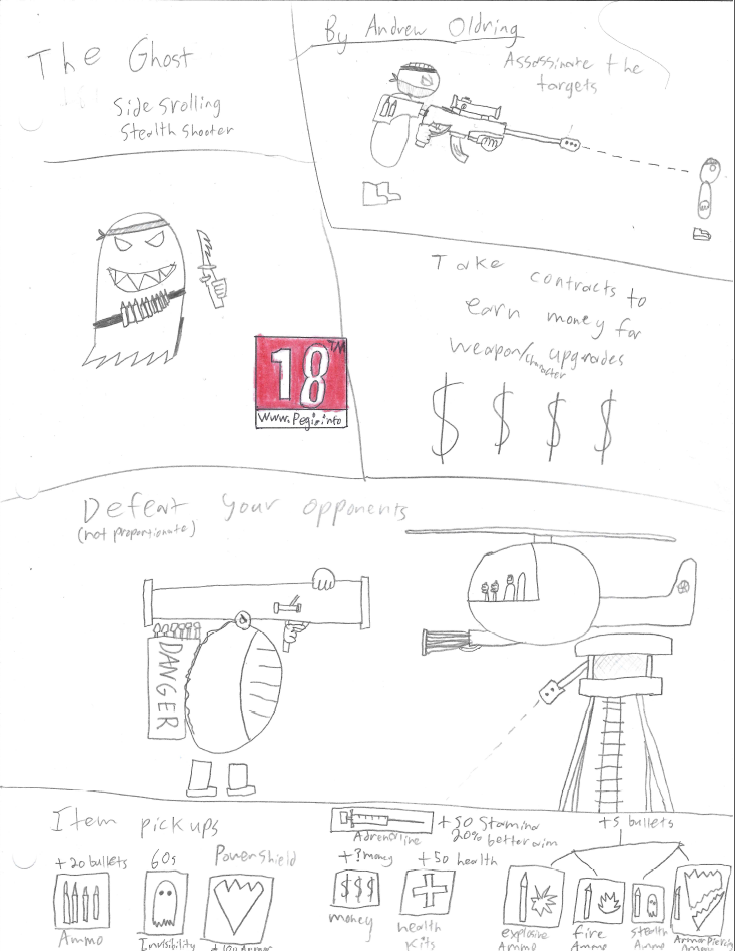 The Ghost
Side Srolling
Stealth Shooter
By Andrew Oldring
Assassinate the
targets
18™
www.Pegi.info
Take contracts to
earn money for
weapon/character upgrades
$ $ $ $
Defeat your opponents
(not proportionate)
DANGER
Item pickups
+20 bullets
Ammo
60s
Invisibility
Powershield
+?money
$$$
money
Adrenaline
+50 Stamina
20% better aim
+50 health
health
Kits
+5 bullets
explosive
Ammo
fire
Ammo
stealth
Ammo
Armor Piercing